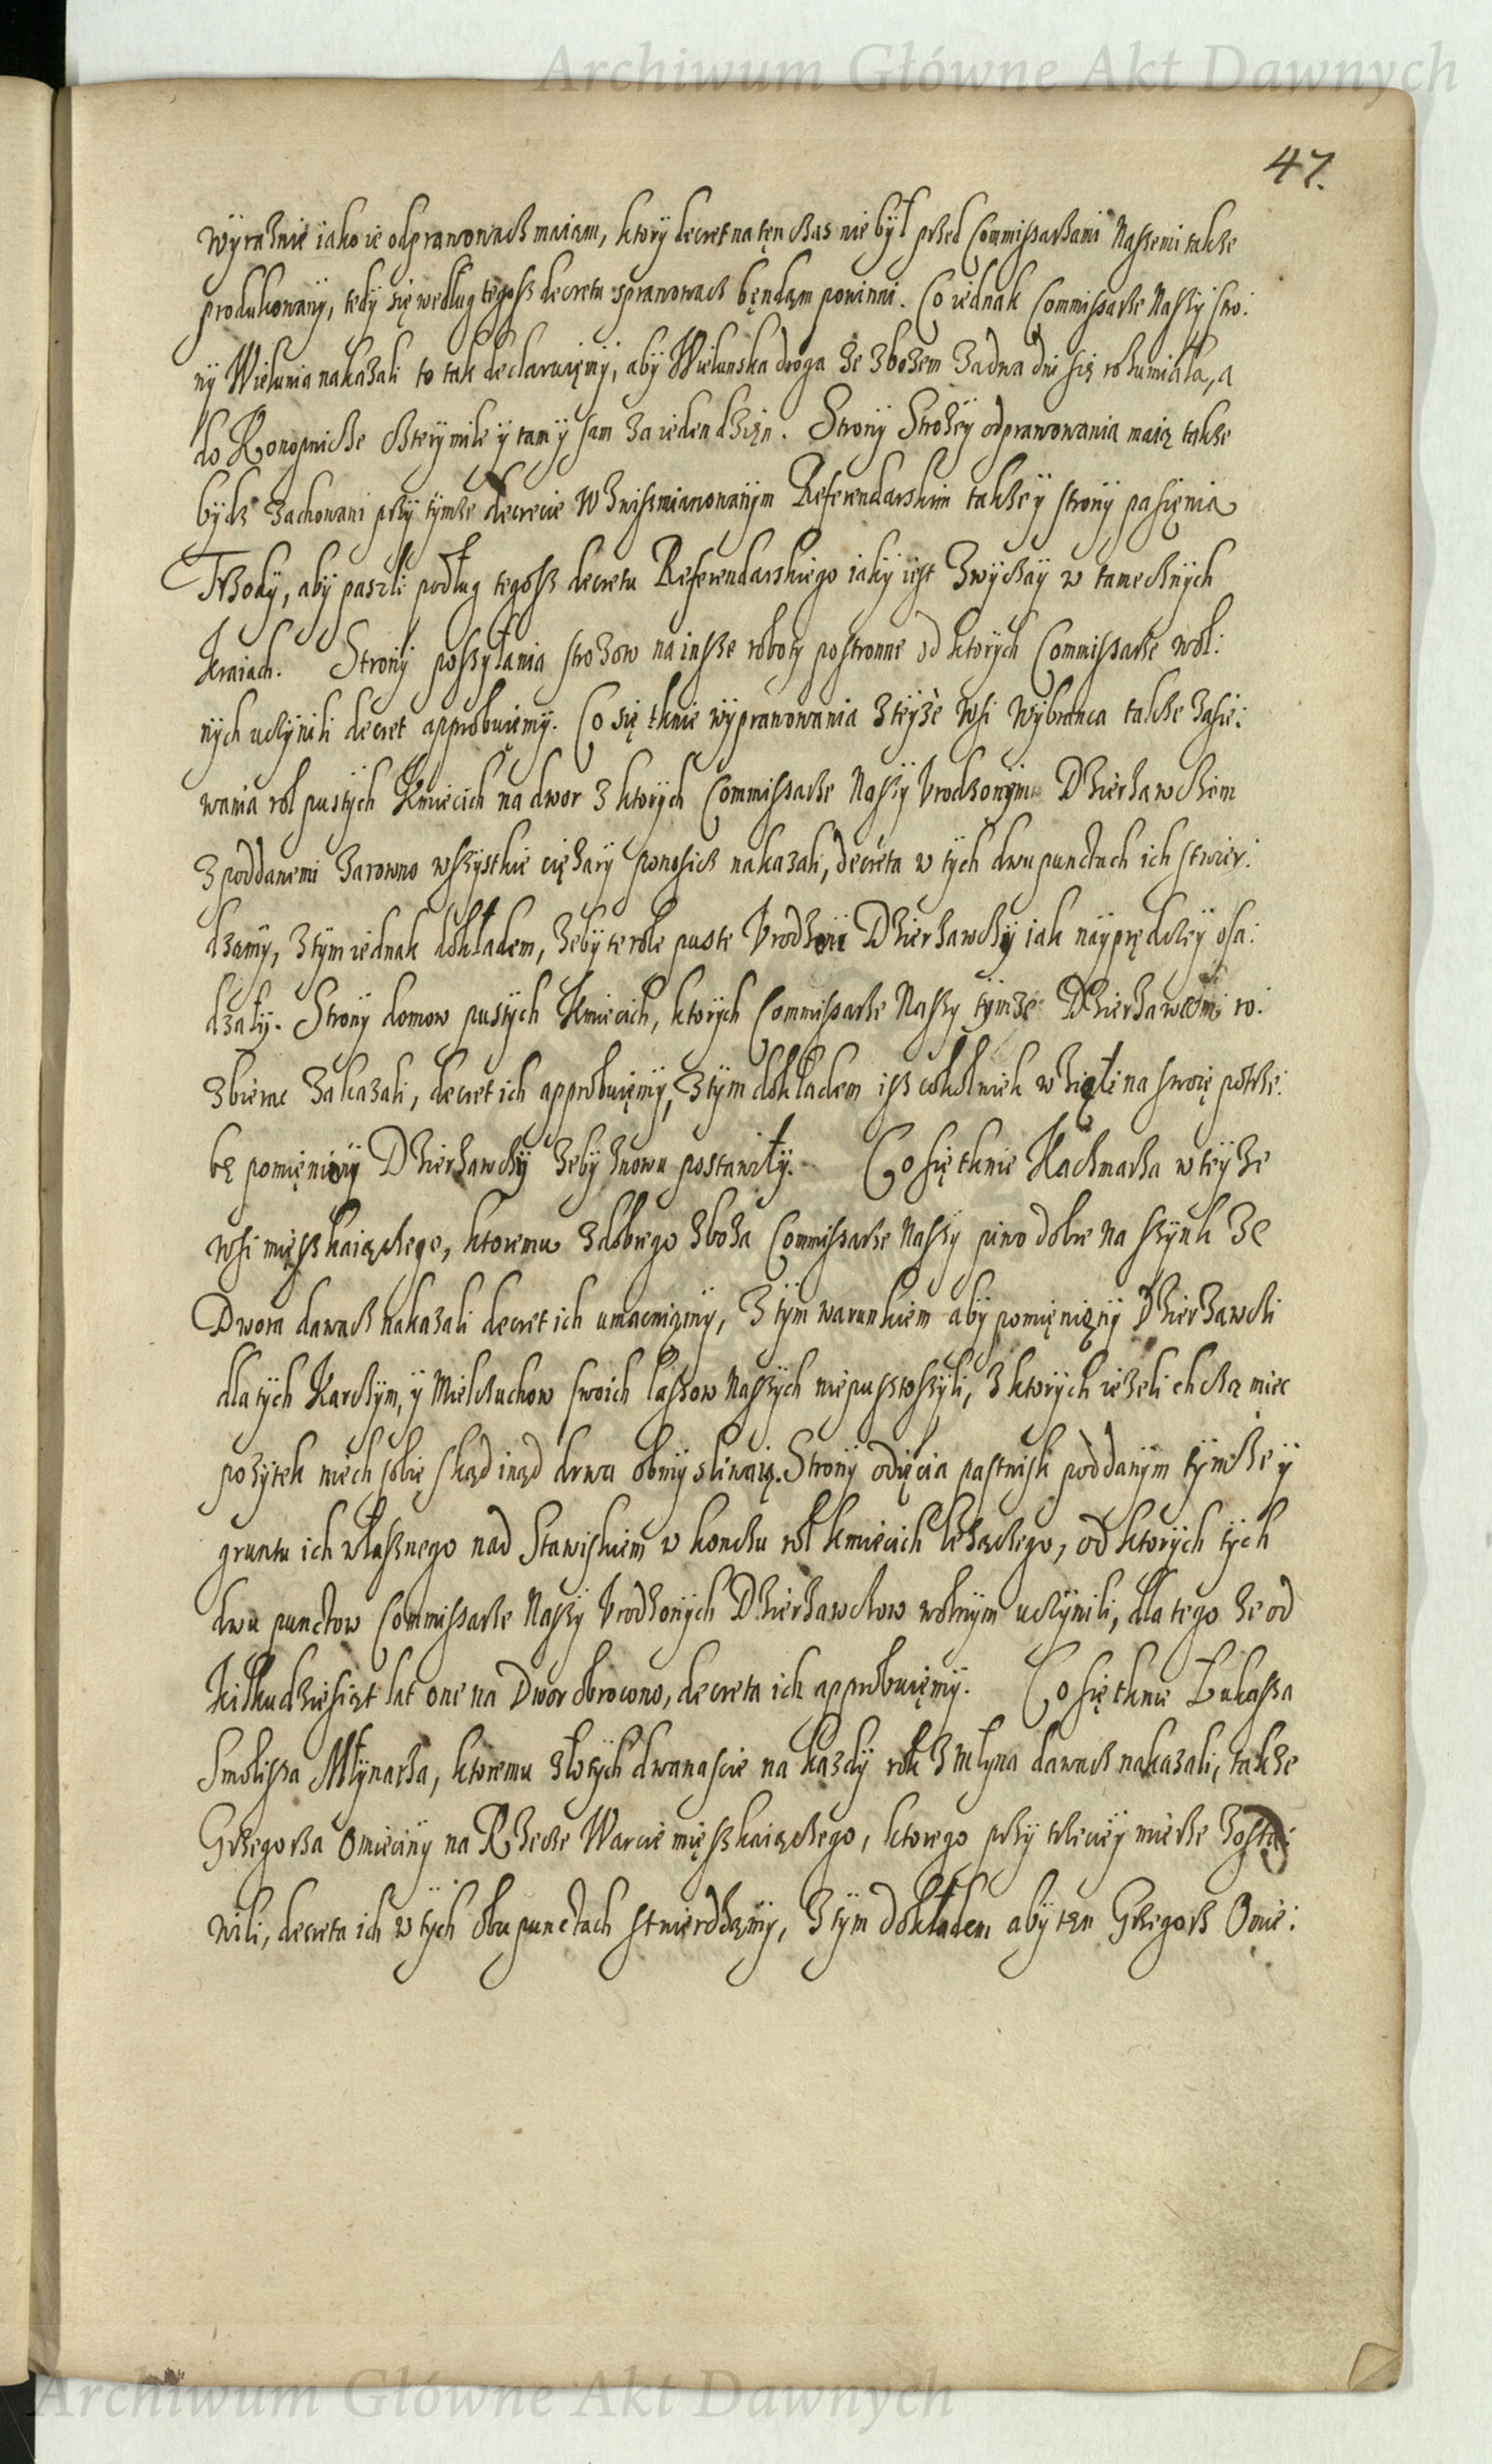 Archiwum Główne Akt Dawnych
47.
wyraznie iako ie odprawowacz maiąm, ktory decret na tęn czas nie był przed Commissarzami Naszemi także
produkowany, tedy się według tegosz decretu sprawowacz bęndąm powinni. Co iednak Commissarze Naszy stro:
ny Wielunia nakazali to tak declaruięmy, aby Wielunska droga ze zbozem za dwa dni się rozumiała, a
do Konopnicze czterymile y tam y sam za ieden dzięn. Strony Strozey odprawowania maią także
bydz zachowani przy tymze decrecie Wzwiszmianowanym Referendarskim także y strony pasięnia
Trzody, aby paszli podług tegosz decretu Referendarskiego iaky iest Zwyczay w tamecznych
kraiach. Strony poszyłania strozow na insze roboty postronne od ktorych Commissarze wol:
nych uczynili decret approbuięmy. Co się tknie wyprawowania z teyże Wsi Wybranca takze zasie:
wania rol pustych Kmiecich na dwor z ktorych Commissarze Naszy Urodzonym Dzierzawczem
z poddanemi zarowno wszystkie ciężary ponosicz nakazali, decreta w tych dwu punctach ich stwier:
dzamy, z tym iednak dokładem, zeby te role puste Urodzeni Dzierzawczy iak nayprędzey osa:
dzały. Strony domow pustych Kmiecich, ktorych Commissarze Naszy tymze Dzierzawcom ro:
zbierac zakazali, decret ich approbuięmy, z tym dokładem isz cokolwiek wzięli na swoię potrze:
bę pomięniony Dzierzawczy zeby znowu postawiły. Co się tknie Kaczmarza w teyze
wsi mięszkaiączego, ktoremu z dobrego zboza Commissarze Naszy piwo dobre na szynk ze
Dwora dawacz nakazali decret ich umacniąmy, z tym warunkiem aby pomięnięny Dzierzawczi
dla tych Karczym, y Mielczuchow swoich lassow Naszych niepustoszyli, z ktorych iezeli chczą miec
pozytek niech sobię skąd inąd drwa obmysliwaią. Strony odięcia pastwisk poddanym tymze y
gruntu ich własznego nad Stawiskiem w konczu rol kmiecich leżączego, od ktorych tych
dwu punctow Commissarze Naszy Urodzonych Dzierzawczow wolnym uczynili, dla tego ze od
kilkudziesiąt lat one na Dwor obrocono, decreta ich approbuięmy. Co się tknie Łukasza
Smolisza Młynarza, ktoremu złotych dwanascie na kazdy rok z młyna dawacz nakazali, takze
Grzegorza Omieciny na Rzecze Warcie mięszkaiączego, ktorego przy trzeciey mierze zosta:
wili, decreta ich w tych obu punctach stwierdząmy, z tym dokładem aby tęn Grzegorz Omie:
Archiwum Główne Akt Dawnych